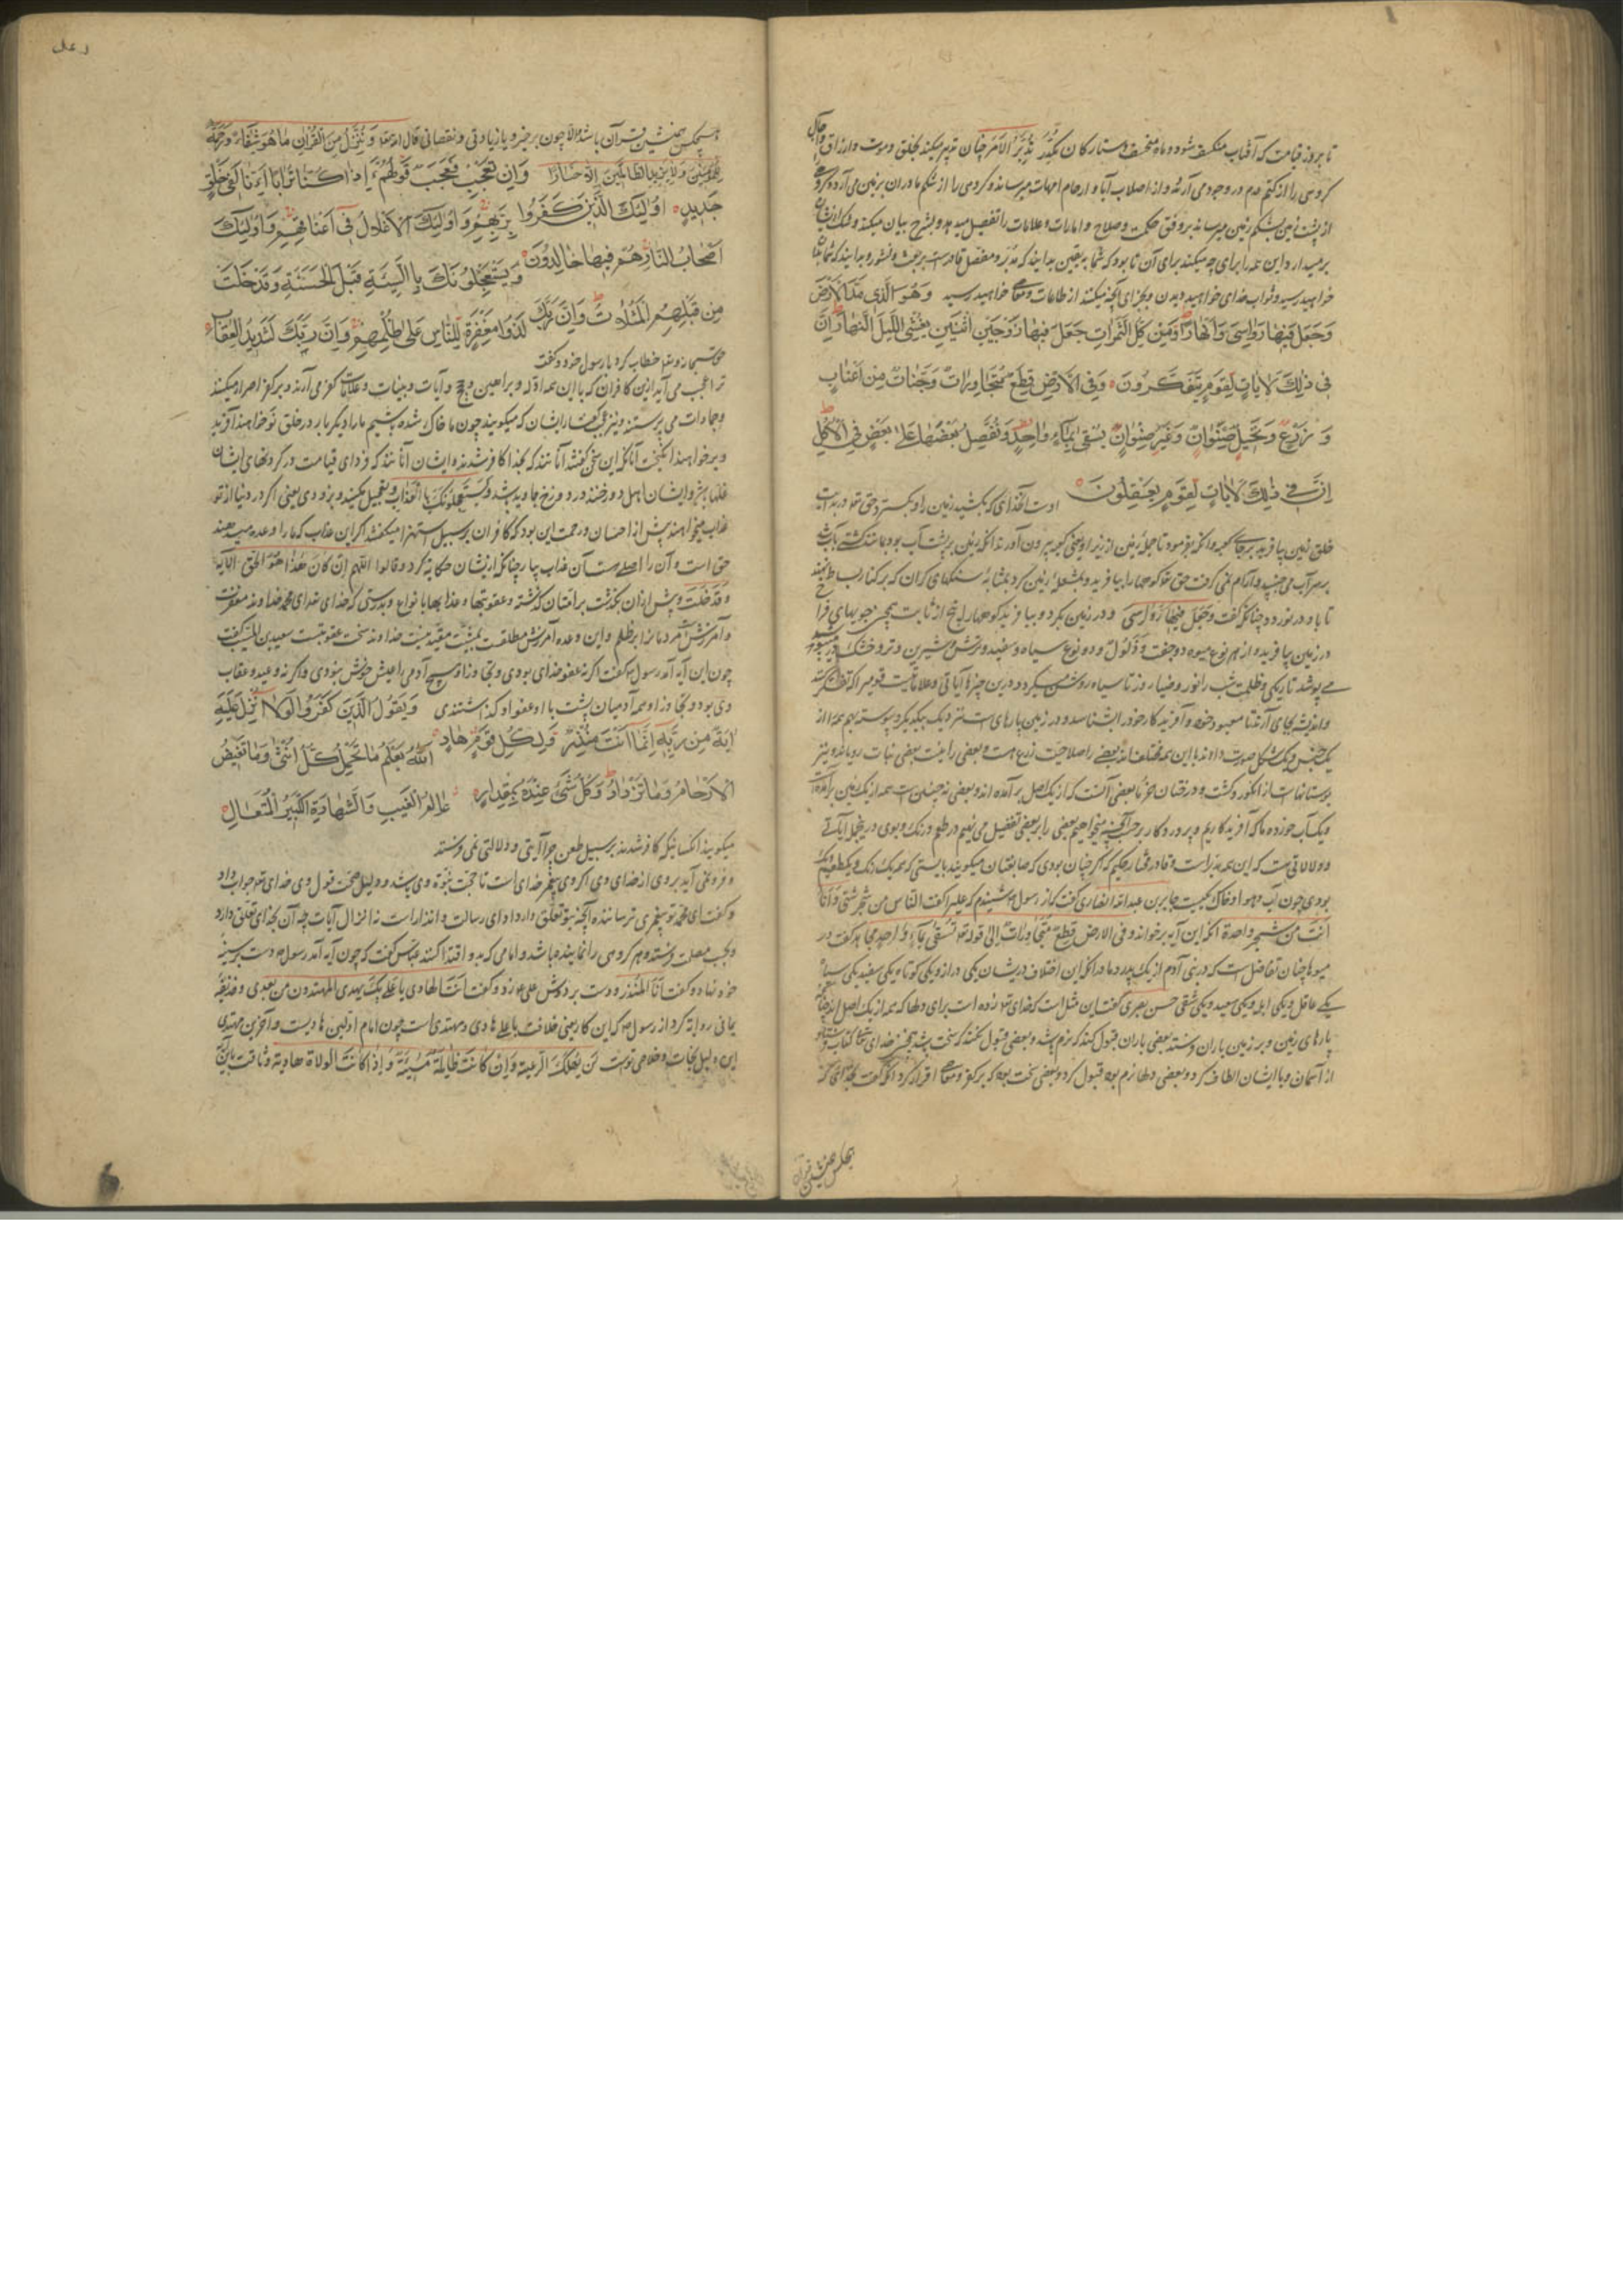 تا بروز قیامت که آفتاب منکسف شود و ماه منخسف و ستارگان مکدّر یُدَبِّرُ الاَمرَ چنان تدبیر میکند بخلق و موت و ارزاق و آجال
گروهی را از کتم عدم در وجود می آرد و از اصلاب آبا و ارحام امهات میرساند و گروهی را از شکم مادران برزمین می آرد و گروهی
از پشت زمین بشکم زمین میرساند بر وفق حکمت و صلاح و امارات و علامات را تفصیل میدهد و بشرح بیان میکند و شک ایشان
برمیدارد این همه را برای چه میکند برای آن تا بود که شما بیقین بدانید که مدبّر و مفصّل قادرست بر بعث و نشور و بدانید که شما بلقای
خواهید رسید و ثواب خدای خواهید دیدن و بجزای آنچه میکنید از طاعات و معاصی خواهید رسید وَهُوَ الَّذی مَدَّ الاَرضَ
وَجَعَلَ فیهَا رَواسِیَ وَاَنهَارًا وَمِن کُلِّ الثَّمَراتِ جَعَلَ فیهَا زَوجَینِ اثنَینِ یُغشِی اللَّیلَ النَّهارَ اِنَّ
فی ذٰلِکَ لَاٰیاتٍ لِقَومٍ یَتَفَکَّرُونَ وَفِی الاَرضِ قِطَعٌ مُتَجَاوِراتٌ وَجَنّاتٌ مِن اَعنابٍ
وَ زَرعٌ وَ نَخیلٌ صِنوَانٌ وَغَیرُ صِنوَانٍ یُسقٰی بِمَاءٍ وَاحِدٍ وَنُفَضِّلُ بَعضَهَا عَلٰی بَعضٍ فِی الاُکُلِ
اِنَّ فی ذٰلِکَ لَاٰیاتٍ لِقَومٍ یَعقِلُونَ اوست آنخدای که بکشید زمین را و بگسترد حق تعالی در بدایت
خلق زمین بیافرید برجای کعبه وانگه بفرمود تا جمله زمین از زیر او یعنی کعبه بیرون آوردند انگه زمین بر پشت آب بود مانند کشتی بآب
بر سر آب می جنبید و آرام نمی گرفت حق تعالی کوهها را بیافرید و بمشعله زمین کرد بمثابه سنگهای گران که بر کنار بساط نهند
تا باد در نورد و چنانکه گفت وَجَعَلَ فیهَا رَوَاسِیَ و در زمین بکرد و بیافرید کوهها راسخ از ثابت همچنین جویهای فرا
در زمین بیافرید و از هر نوع میوه دو جفت و دو نوع سیاه و سفید و ترش و شیرین و تر و خشک
می پوشد تاریکی و ظلمت شب را نور و ضیاء روز تا سیاه روشن میگردد و درین چیزها آیاتی و علاماتیست قومی را که تفکر کنند
و اندیشه بجای آرند تا معبود خود و آفریدگار خود را بشناسد و در زمین پارهای است نزدیک بیکدیگر پیوسته بهم همه از
یک جنس و یک شکل و صورت دارند با این همه مختلف اند بعضی را صلاحیت زرع هست و بعضی را نیست بعضی نبات رویاند و نیز
بوستانهاست از انگور و کشت و درختان خرما بعضی آنست که از یک اصل برآمده اند و بعضی نه چنین است همه از یک زمین برآمده
و یک آب خورده ما که آفریدگاریم و پروردگار بر حسب آنچه میخواهیم بعضی را بر بعضی تفضیل می نهیم در طعم و رنگ و بوی درین جمله آیاتی
و دلالاتی هست که این همه مدبّر است و قادر مختار حکیم که اگر چنان بودی که طبایعیان میگویند بایستی که همه یک رنگ و یک طعم
بودی چون آب و هوا و خاک یکیست جابر بن عبدالله انصاری گفت که از رسول ع شنیدم که علی را گفت الناس من شجر شتّی وَاَنَا
اَنتَ مِن شَجَرٍ واحدة انگه این آیه برخواند وفی الارض قِطَعٌ مُتَجاوراتٌ الی قوله تعالی تُسقٰی بِمَاءٍ وَاحِدٍ مجاهد گفت در
میوها چنان تفاضل است که در بنی آدم از یک پدر و مادر انگه این اختلاف در ایشان یکی دراز و یکی کوتاه یکی سفید یکی سیاه
یکی عاقل و یکی ابله و یکی سعید و یکی شقی حسن بصری گفت این مثل است که خدای تعالی زده است برای دلها که همه از یک اصل اند چنانکه
پارهای زمین و بر زمین باران فرستد بعضی باران قبول کند که نرم باشد و بعضی قبول نکند که سخت باشد همچنین خدای تعالی کتاب فرستاد
از آسمان و با ایشان الطاف کرد و بعضی دلها نرم بود قبول کرد و بعضی سخت بود که بر کفر و معاصی اقرار کرد آنگه گفت بخدای که
همکس همنشین قرآن
هیچکس همنشین قرآن باشد والا چون برخیزد یا زیادتی و نقصانی قال الله تعالی وَنُنَزِّلُ مِنَ القُرآنِ مَا هُوَ شِفَاءٌ وَرَحمَةٌ
لِلمُؤمِنینَ وَلا یَزیدُ الظّالِمینَ اِلّا خَسَارًا وَاِن تَعجَب فَعَجَبٌ قَولُهُم ءَاِذَا کُنّا تُرَابًا ءَاِنّا لَفی خَلقٍ
جَدیدٍ اُولٰئِکَ الَّذینَ کَفَرُوا بِرَبِّهِم وَاُولٰئِکَ الاَغلَالُ فی اَعنَاقِهِم وَاُولٰئِکَ
اَصحَابُ النّارِ هُم فیهَا خَالِدُونَ وَیَستَعجِلُونَکَ بِالسَّیِّئَةِ قَبلَ الحَسَنَةِ وَقَد خَلَت
مِن قَبلِهِمُ المَثُلَاتُ وَاِنَّ رَبَّکَ لَذُو مَغفِرَةٍ لِلنّاسِ عَلٰی ظُلمِهِم وَاِنَّ رَبَّکَ لَشَدیدُ العِقَابِ
حق سبحانه و تعالی خطاب کرد با رسول خود و گفت
ترا عجب می آید ازین کافران که با این همه ادله و براهین و حجج و آیات و بینات و علامات کفر می آرند و بر کفر اصرار میکنند
و جمادات می پرستند و نیز عجب گفتار ایشان که میگویند چون ما خاک شده باشیم ما را دیگر بار در خلق نو خواهند آفرید
و بر خواهند انگیخت آنانکه این سخن گفتند آنانند که بخدا کافر شدند ایشان آنانند که فردای قیامت در گردنهای ایشان
غلها باشد و ایشان اهل دوزخند و در دوزخ جاوید باشند وَیَستَعجِلُونَکَ بِالعَذَابِ و تعجیل میکنند و بزودی یعنی اگر در دنیا از تو
عذاب میخواهند پیش از احسان و رحمت این بود که کافران بر سبیل استهزا میگفتند اگر این عذاب که ما را وعده میدهند
حق است و آن را اصلی هست آن عذاب بیار چنانکه ازیشان حکایة کرد و قالوا اللّهم اِن کَانَ هٰذَا هُوَ الحَقّ الآیه
وَقَد خَلَت و پیش از آن بگذشت بر امتان گذشته و عقوبتها و عذابهای با نواع و بدرستی که خدای تو ای محمد خداوند مغفرتست
و آمرزش مردمانرا بر ظلم و این وعده آمرزش مطلقست بمشیّت مقیّد نیست خداوند سخت عقوبتست سعید بن المسیّب گفت
چون این آیه آمد رسول ع گفت اگر نه عفو خدای بودی و تجاوز او هیچ آدمی را عیش خوش نبودی و اگر نه وعید و عقاب
وی بودی و تجاوز او همه آدمیان پشت با او عفو او گذاشتندی وَیَقُولُ الَّذینَ کَفَرُوا لَولَا اُنزِلَ عَلَیهِ
اٰیَةٌ مِن رَبِّهِ اِنَّمَا اَنتَ مُنذِرٌ وَلِکُلِّ قَومٍ هَادٍ اَللّٰهُ یَعلَمُ مَا تَحمِلُ کُلُّ اُنثٰی وَمَا تَغیضُ
الاَرحَامُ وَمَا تَزدَادُ وَکُلُّ شَیءٍ عِندَهُ بِمِقدَارٍ عَالِمُ الغَیبِ وَالشَّهَادَةِ الکَبیرُ المُتَعَالِ
میگویند آنکسانیکه کافر شدند بر سبیل طعن چرا آیتی و دلالتی نمی فرستند
و فرو نمی آید بر وی از خدای وی اگر وی پیغمبر خدای است تا حجت نبوّة وی باشد و دلیل صحت قول وی خدای تعالی جواب داد
و گفت ای محمد تو پیغمبری ترساننده آنچه بتو تعلق دارد ادای رسالت و انذار است نه انزال آیات چه آن بخدای تعلق دارد
و بحسب مصلحت فرستد و هر گروهی را نماینده باشد و امامی که بدو اقتدا کنند عباس گفت که چون این آیه آمد رسول ع دست بر سینه
خود نهاد و گفت اَنَا المُنذِر و دست بر دوش علی ع زد و گفت اَنتَ الهادی یا علی بِکَ یهتدی المهتدون من بعدی و حذیفه
یمانی روایة کرد از رسول ع که این کار یعنی خلافت با علی هادی و مهتدی است چون امام اولین هادیست و آخرین مهتدی
این دلیل نجات و خلاصی توست لَن یَهلِکَ الرَّعیة وَاِن کَانَت ظَالِمَةً مُسیئَةً وَ اِذَا کَانَت الولاة هادیة